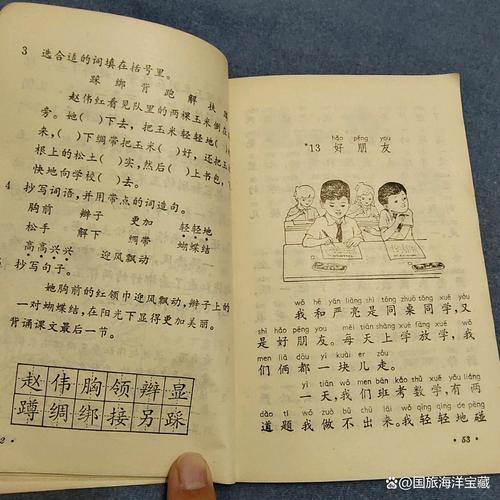 3 选合适的词填在括号里。
踩 绑 背 跑 解 扶
赵伟红看见队里的两棵玉米倒在
旁。她( )下去，把玉米轻轻地( )
来，( )下绸带把玉米( )好，还把玉
根上的松土( )实，然后( )上书包，
快地向学校( )去。
4 抄写词语，并用带点的词造句。
胸前 辫子 更加 轻轻地
松手 解下 绸带 蝴蝶结
高高兴兴 迎风飘动
抄写句子。
她胸前的红领巾迎风飘动，辫子上的
一对蝴蝶结，在阳光下显得更加美丽。
背诵课文最后一节。
赵伟胸领辫显
蹲绸绑接另踩
2 ·
hǎo péng you
*13 好朋友
wǒ hé yán liàng shì tóng zhuō tóng xué yòu
我和严亮是同桌同学，又
shì hǎo péng you měi tiān shàng xué fàng xué wǒ
是好朋友。每天上学放学，我
men liǎ dōu yí kuài er zǒu
们俩都一块儿走。
yì tiān wǒ men bān kǎo shù xué yǒu liǎng
一天，我们班考数学，有两
dào tí wǒ zuò bù chū lái wǒ qīng qīng de pèng
道题我做不出来。我轻轻地碰
· 53 ·
@国旅海洋宝藏